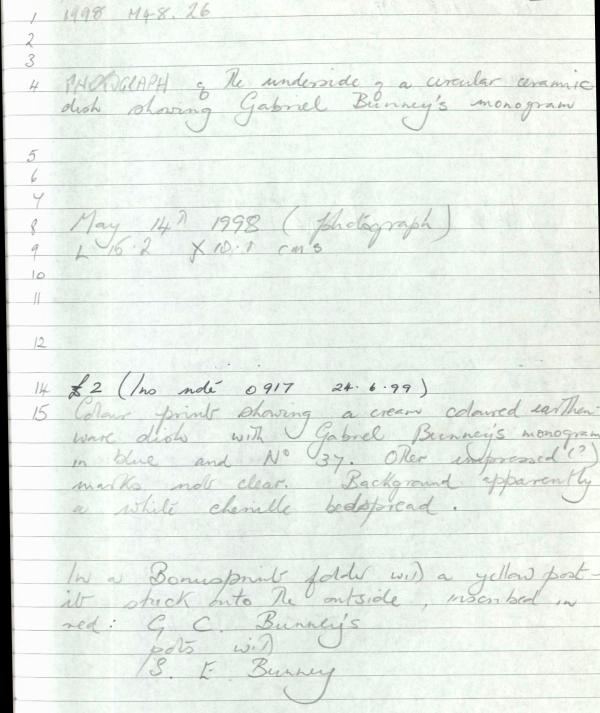 1 1998 M48.26
2
3
4 PHOTOGRAPH of the underside of a circular ceramic
dish showing Gabriel Bunney's monogram
5
6
7
8 May 14th 1998 (photograph)
9 L 15.2 X 10.1 cms
10
11
12
14 £2 (Ins note 0917 24.6.99)
15 Colour prints showing a cream coloured earthen-
ware dish with Gabriel Bunney's monogram
in blue and No 37. Other impressed (?)
marks not clear. Background apparently
a white chenille bedspread.
In a Bonusprint folder with a yellow post-
it stuck onto the outside, inscribed in
red: G. C. Bunney's
pots with
S. E Bunney